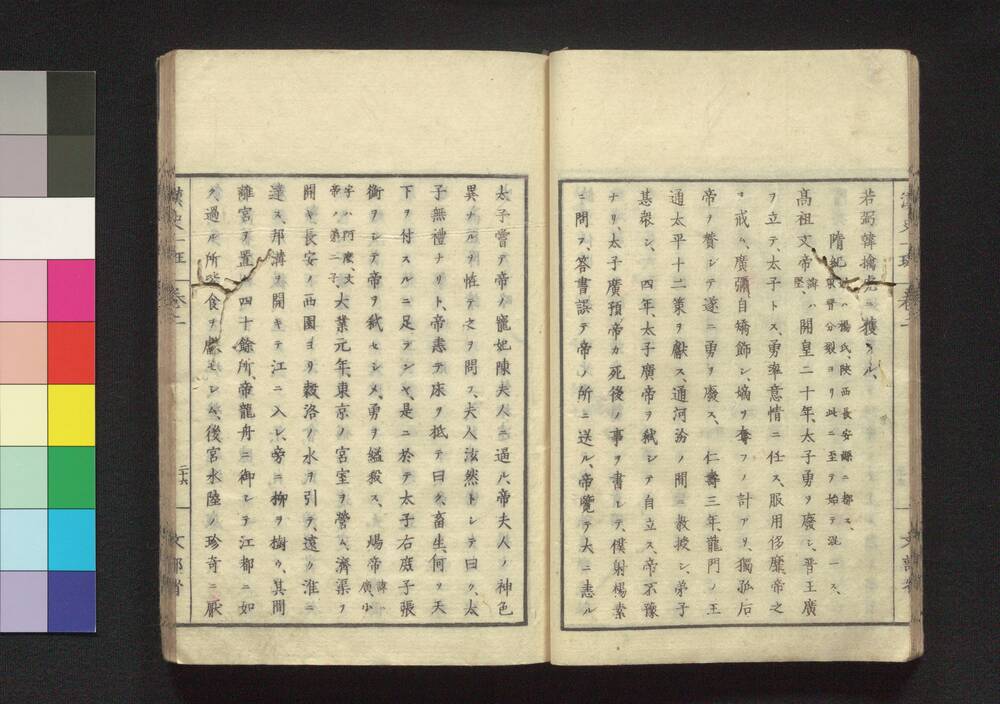 若弼韓擒虎ニ獲ラル、
隋紀
楊氏、陝西長安縣ニ都ス、
東晉分裂ヨリ此ニ至テ始テ混一ス、
高祖文帝 諱ハ堅、 開皇二十年、太子勇ヲ廢シ、晋王廣
ヲ立テ、太子トス、勇率意情ニ任ス、服用侈靡帝之
ヲ戒ム、廣彌自矯飾シ、嫡ヲ奪フノ計アリ、獨孤后
帝ヲ賛シテ遂ニ勇ヲ廢ス、仁壽三年、龍門ノ王
通太平十二策ヲ獻ス、通河汾ノ間ニ教授シ、弟子
甚衆シ、四年、太子廣帝ヲ弑シテ自立ス、帝不豫
ナリ、太子廣預帝カ死後ノ事ヲ書シテ、僕射楊素
ニ問フ、答書誤テ帝ノ所ニ送ル、帝覽テ大ニ恚ル
太子嘗テ帝ノ寵妃陳夫人ニ逼ル、帝夫人ノ神色
異ナルヲ恠テ之ヲ問フ、夫人泫然トシテ曰ク、太
子無禮ナリト、帝恚テ床ヲ抵テ曰ク、畜生何ソ天
下ヲ付スルニ足ランヤ、是ニ於テ太子右庶子張
衡ヲシテ帝ヲ弑セシメ、勇ヲ縊殺ス、煬帝 諱ハ廣、小
字ハ阿麼、文帝ノ第二子 大業元年、東京ノ宮室ヲ營ム、濟渠ヲ
開キ、長安ノ西園ヨリ穀洛ノ水ヲ引テ、遠ク淮ニ
達ス、邦溝ヲ開キテ江ニ入レ、旁ニ柳ヲ樹ウ、其間
離宮ヲ置ク四十餘所、帝龍舟ニ御シテ江都ニ如
ク過ル所 食ヲ獻セシム、後宮水陸ノ珍奇ニ厭
二十六
文部省